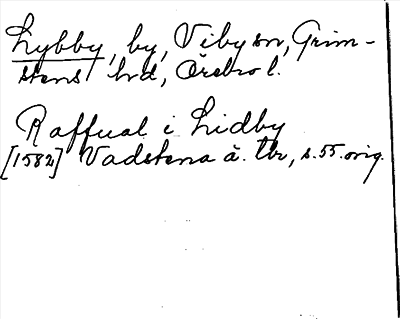 Lybby, by, Viby sn, Grim-
stens hd, Örebro l.
Raffual i Lidby
[1582] Vadstena ä. tbr, s. 55. orig.